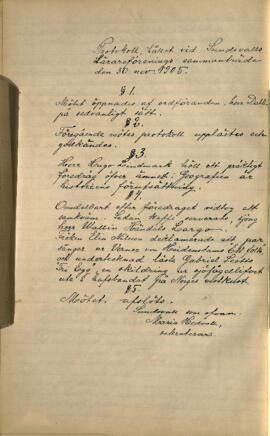 Protokoll, hållet vid Sundsvalls
Lärareförenings sammanträde
den 30 nov 1905.
§ 1.
Mötet öppnades af ordföranden, herr Dahl
på sedvanligt sätt.
§ 2.
Föregående mötes protokoll upplästes och
godkändes.
§ 3.
Herr Hugo Lindmark höll ett präktigt
föredrag öfver ämnet: Geografien är
historiens förutsättning.
§ 4.
Omedelbart efter föredraget vidtog ett
samkväm. Sedan kaffe serverats, sjöng
herr Wallin Händels Largo.
Fröken Elin Nilsson deklamerade ett par
sånger av Verner von Heidenstams Ett folk
och undertecknad läste Gabriel Scotts
Tri Ego, en skildring ur sjöfågellifvet
ute å hafsbandet från Norges västkust.
§ 5
Mötet afslöts.
Sundsvall som ofvan.
Maria Hedvall,
sekreterare.